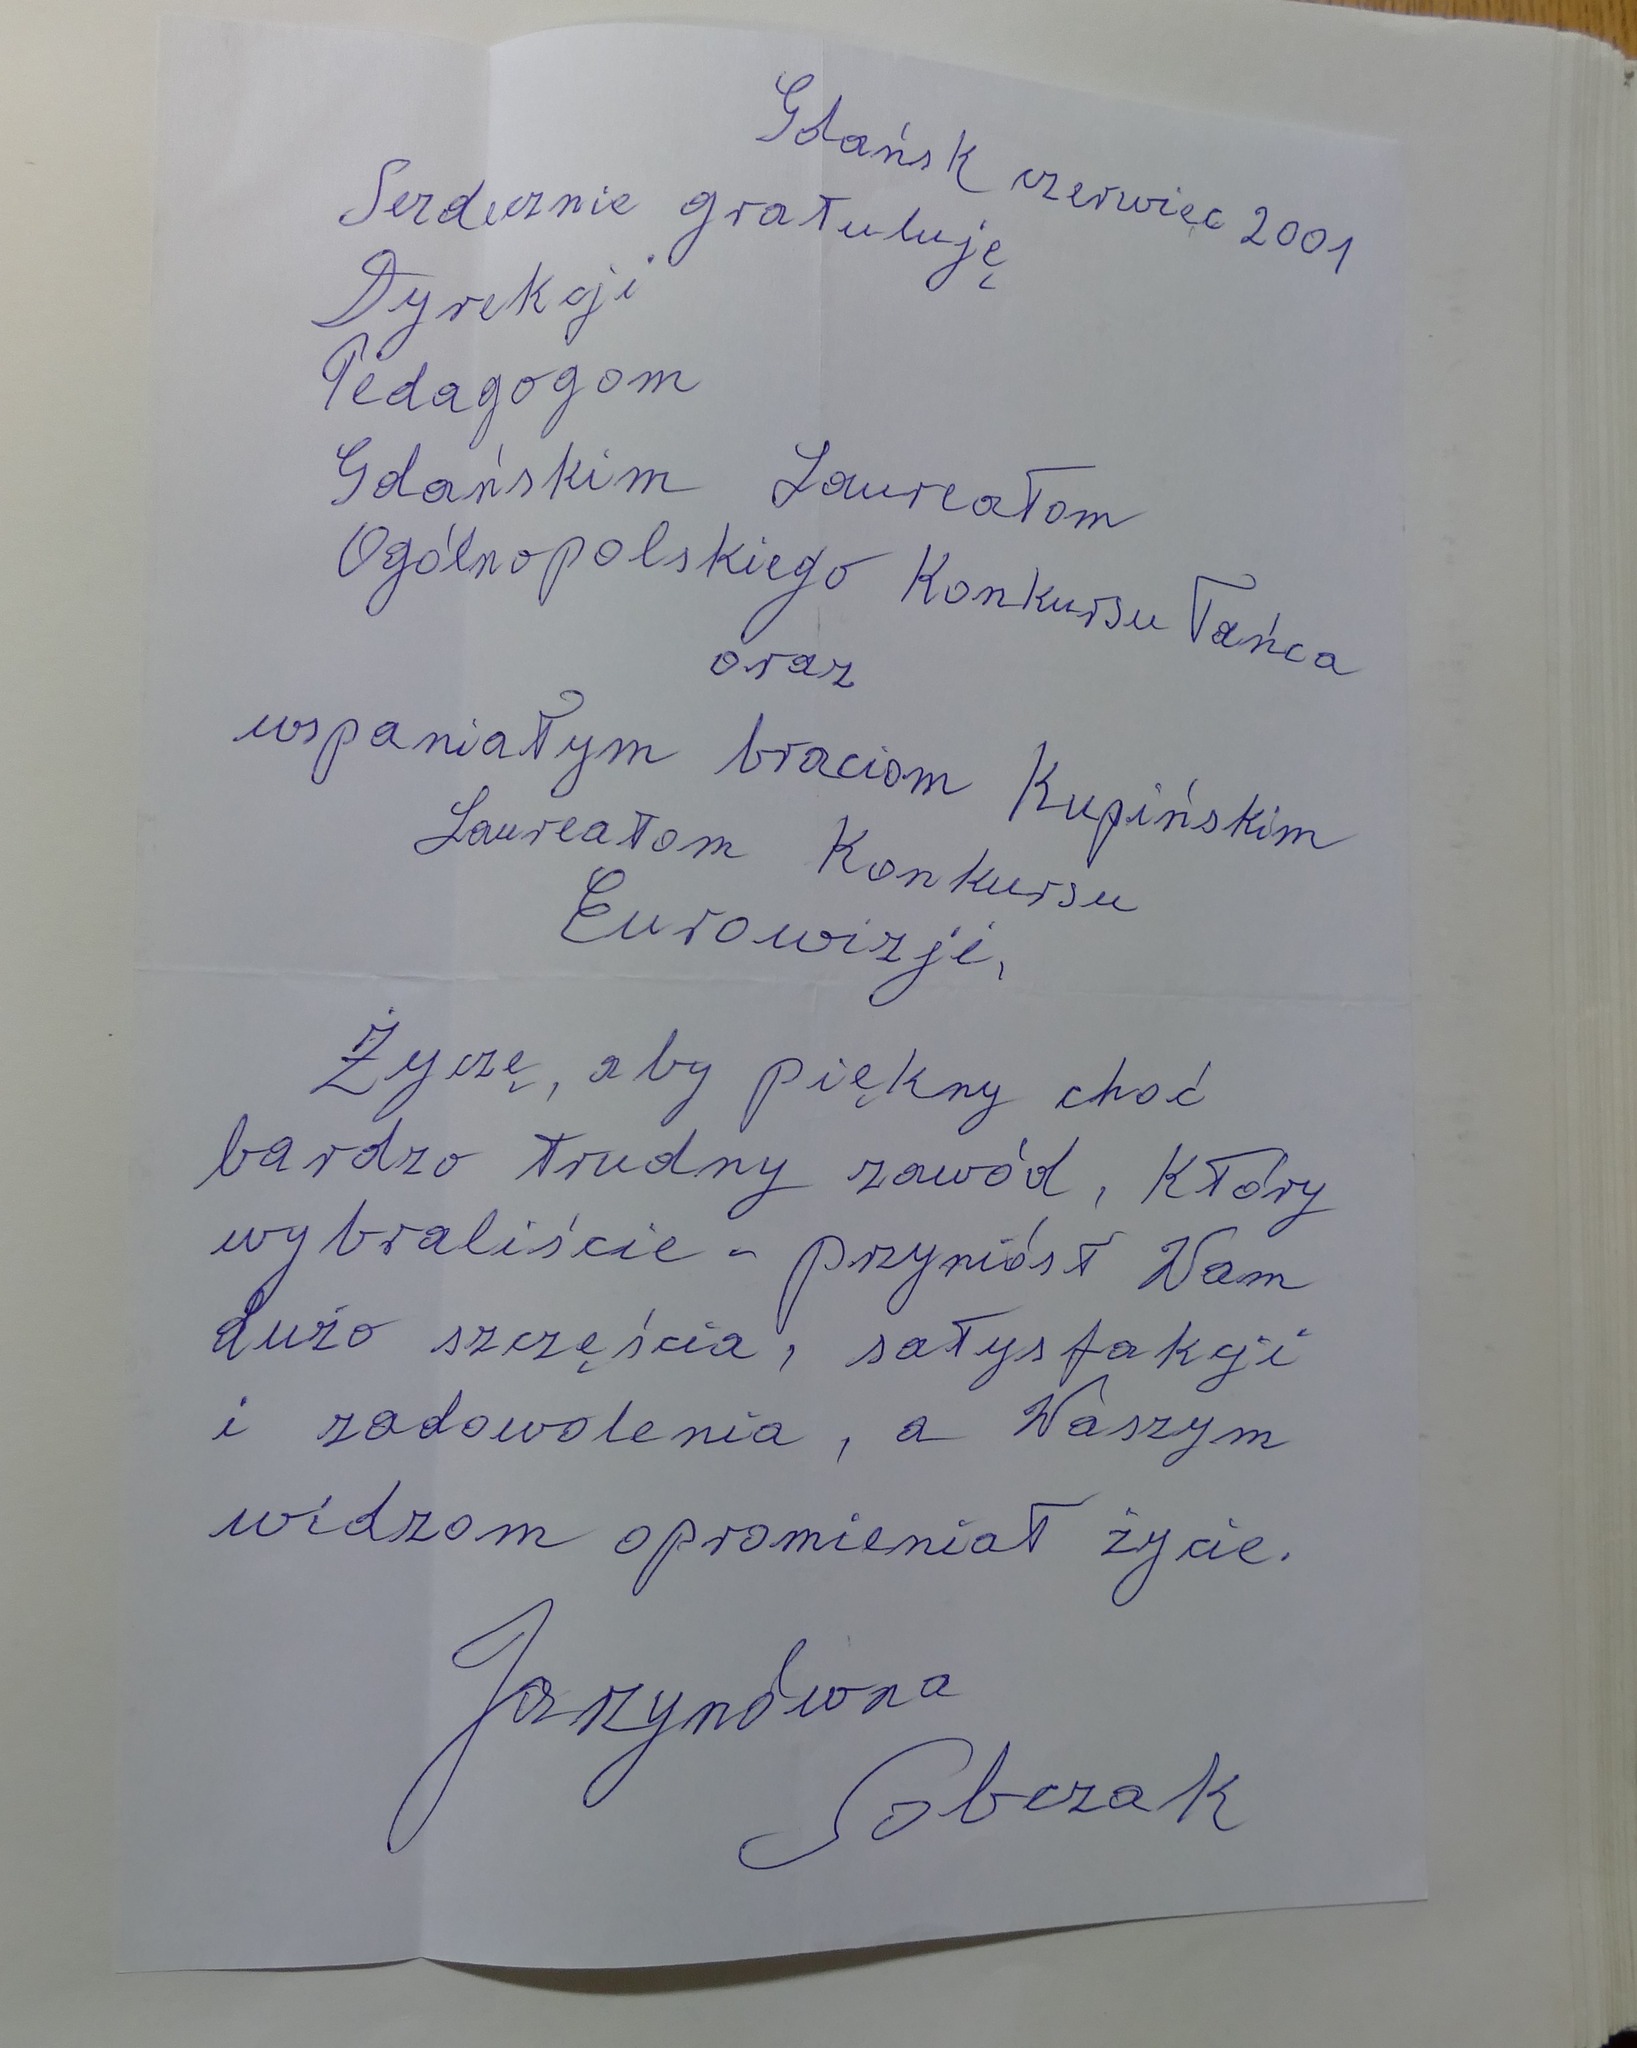 Gdańsk czerwiec 2001
Serdecznie gratuluję
Dyrekcji
Pedagogom
Gdańskim Laureatom
Ogólnopolskiego Konkursu Tańca
oraz
wspaniałym braciom Kupińskim
Laureatom Konkursu
Eurowizji,
Życzę, aby piękny choć
bardzo trudny zawód, który
wybraliście - przyniósł Wam
dużo szczęścia, satysfakcji
i zadowolenia, a Waszym
widzom opromieniał życie.
Jarzynówna
Sobczak